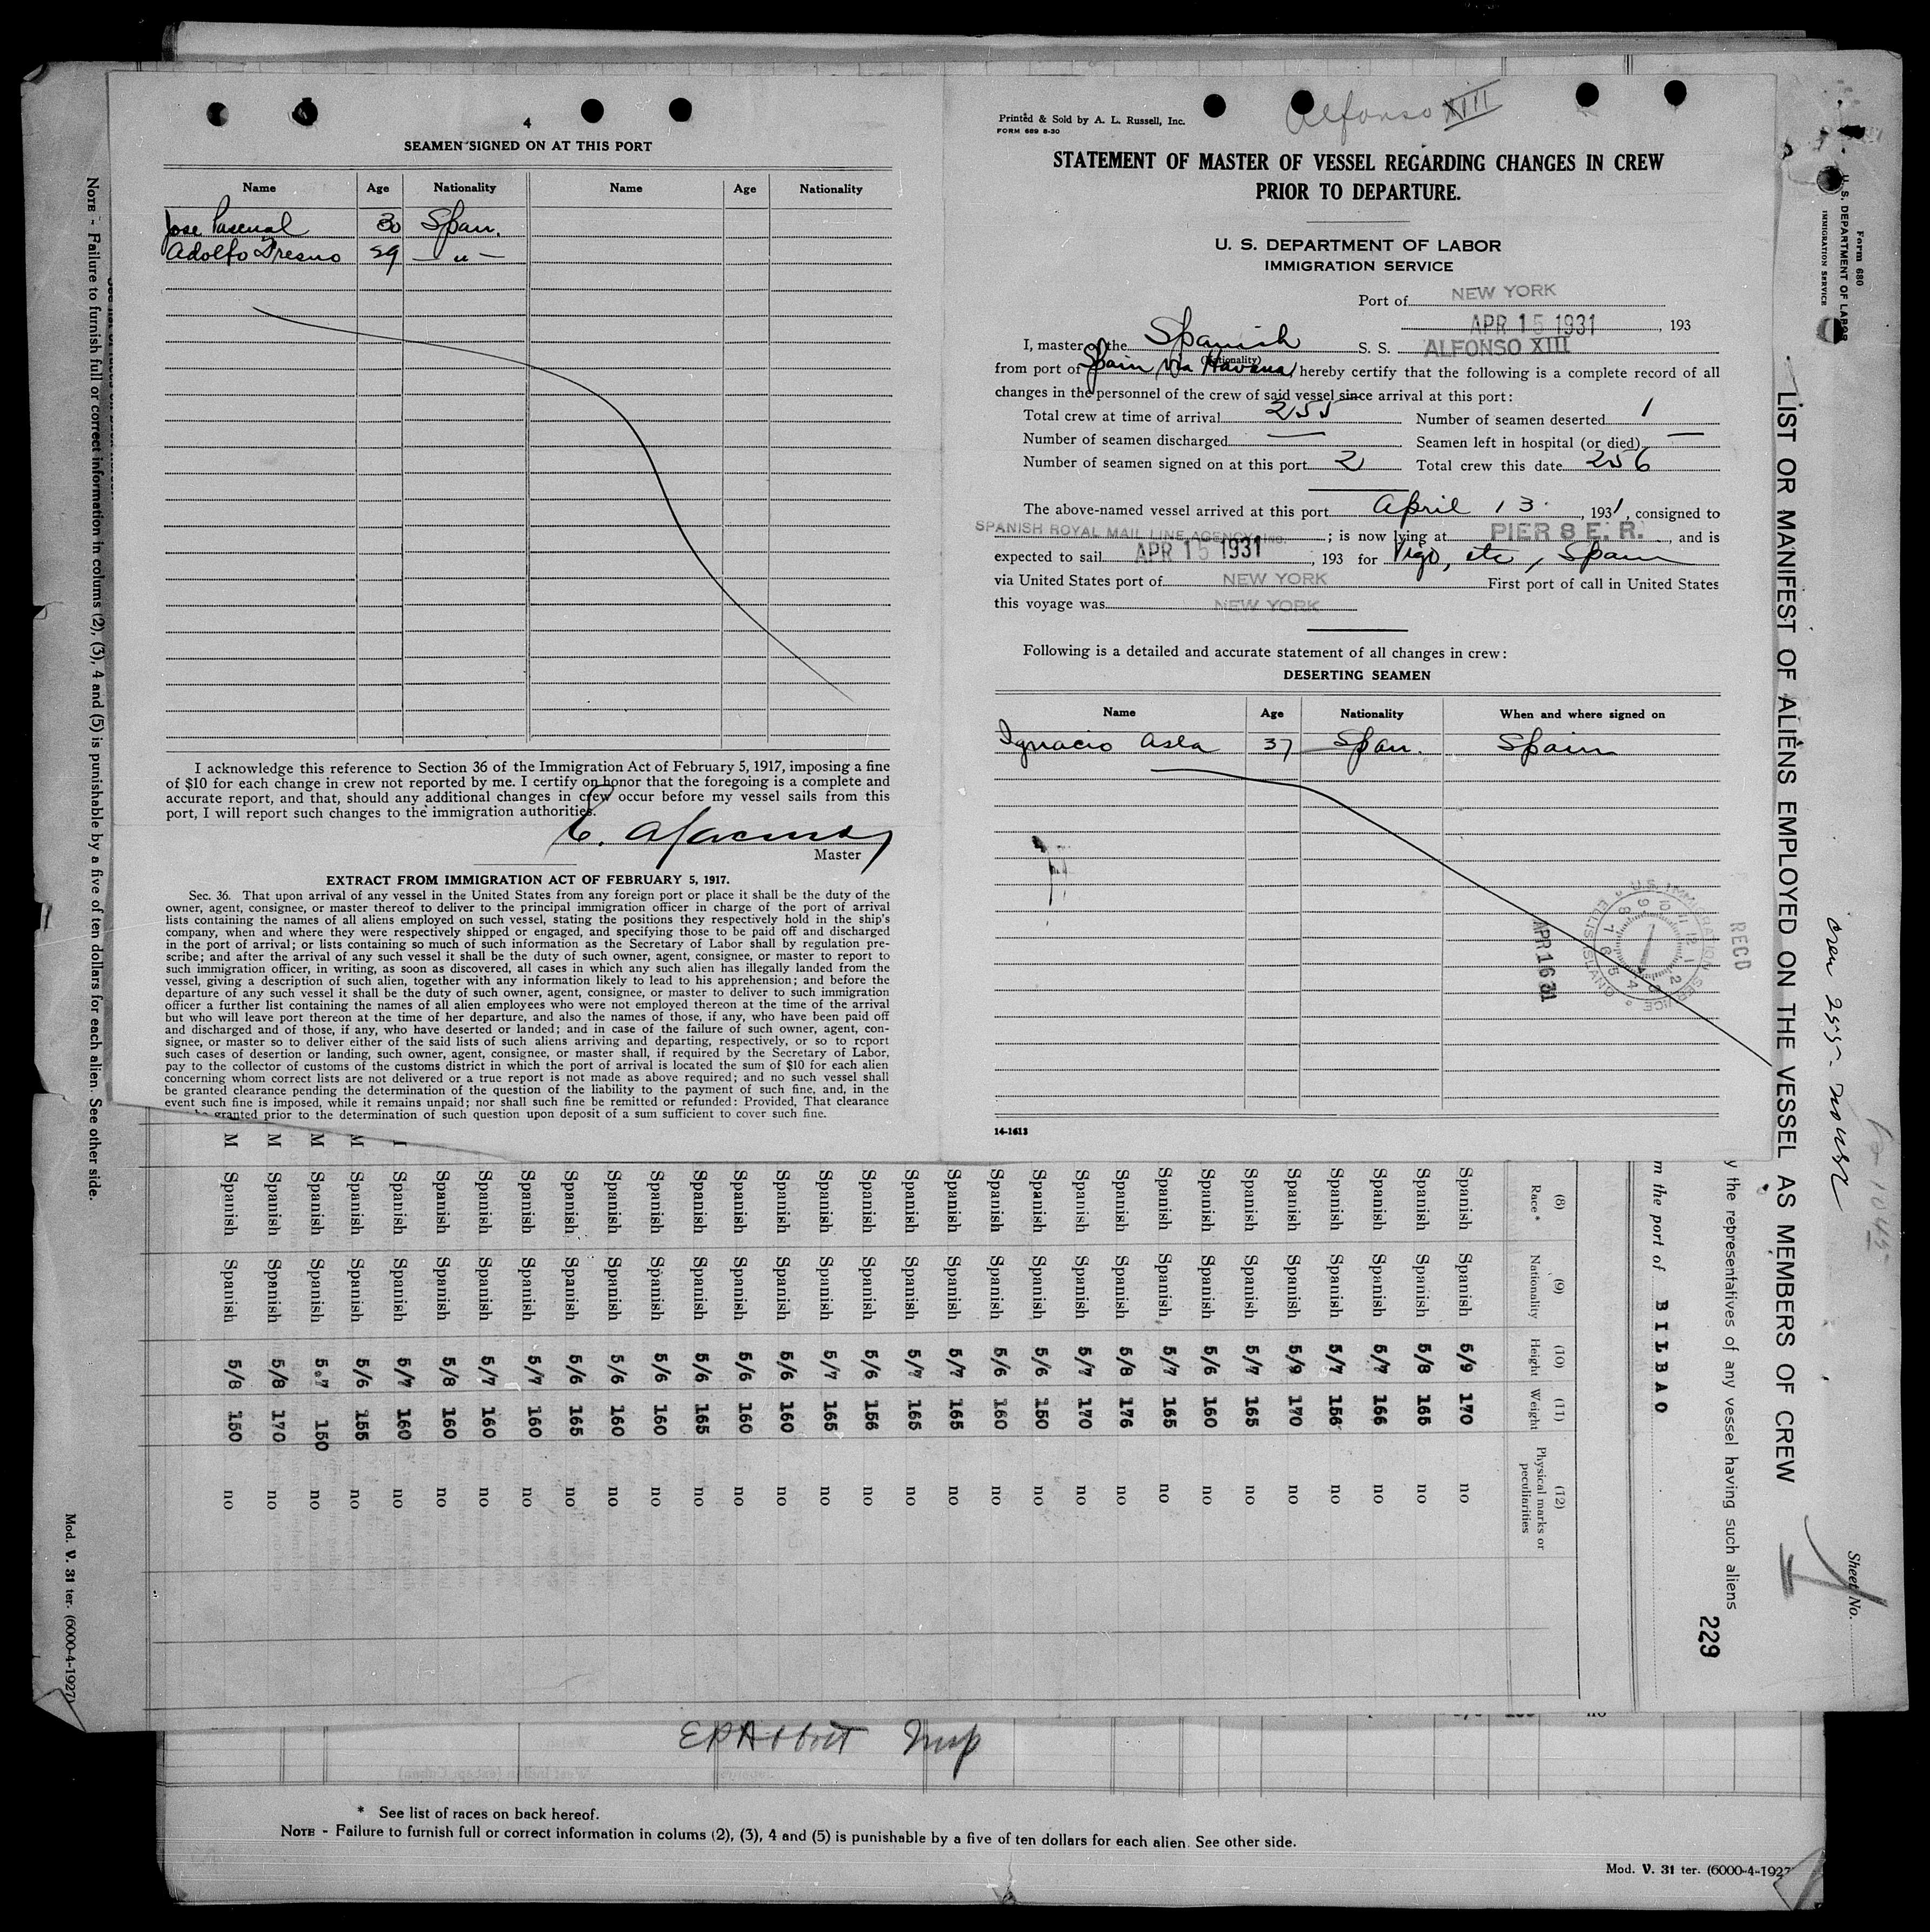 4
SEAMEN SIGNED ON AT THIS PORT
Name Age Nationality Name Age Nationality
Jose Pascual 30 Span.
Adolfo Fresno 29 — " —
I acknowledge this reference to Section 36 of the Immigration Act of February 5, 1917, imposing a fine
of $10 for each change in crew not reported by me. I certify on honor that the foregoing is a complete and
accurate report, and that, should any additional changes in crew occur before my vessel sails from this
port, I will report such changes to the immigration authorities.
Master
EXTRACT FROM IMMIGRATION ACT OF FEBRUARY 5, 1917.
Sec. 36. That upon arrival of any vessel in the United States from any foreign port or place it shall be the duty of the
owner, agent, consignee, or master thereof to deliver to the principal immigration officer in charge of the port of arrival
lists containing the names of all aliens employed on such vessel, stating the positions they respectively hold in the ship's
company, when and where they were respectively shipped or engaged, and specifying those to be paid off and discharged
in the port of arrival; or lists containing so much of such information as the Secretary of Labor shall by regulation pre-
scribe; and after the arrival of any such vessel it shall be the duty of such owner, agent, consignee, or master to report to
such immigration officer, in writing, as soon as discovered, all cases in which any such alien has illegally landed from the
vessel, giving a description of such alien, together with any information likely to lead to his apprehension; and before the
departure of any such vessel it shall be the duty of such owner, agent, consignee, or master to deliver to such immigration
officer a further list containing the names of all alien employees who were not employed thereon at the time of the arrival
but who will leave port thereon at the time of her departure, and also the names of those, if any, who have been paid off
and discharged and of those, if any, who have deserted or landed; and in case of the failure of such owner, agent, con-
signee, or master so to deliver either of the said lists of such aliens arriving and departing, respectively, or so to report
such cases of desertion or landing, such owner, agent, consignee, or master shall, if required by the Secretary of Labor,
pay to the collector of customs of the customs district in which the port of arrival is located the sum of $10 for each alien
concerning whom correct lists are not delivered or a true report is not made as above required; and no such vessel shall
be granted clearance pending the determination of the question of the liability to the payment of such fine, and, in the
event such fine is imposed, while it remains unpaid; nor shall such fine be remitted or refunded: Provided, That clearance
granted prior to the determination of such question upon deposit of a sum sufficient to cover such fine.
Alfonso XIII
Printed & Sold by A. L. Russell, Inc.
FORM 689 8-30
STATEMENT OF MASTER OF VESSEL REGARDING CHANGES IN CREW
PRIOR TO DEPARTURE.
U. S. DEPARTMENT OF LABOR
IMMIGRATION SERVICE
Port of NEW YORK
APR 15 1931, 193
I, master of the Spanish S. S. ALFONSO XIII
(Nationality)
from port of Spain via Havana hereby certify that the following is a complete record of all
changes in the personnel of the crew of said vessel since arrival at this port:
Total crew at time of arrival 255 Number of seamen deserted 1
Number of seamen discharged — Seamen left in hospital (or died) —
Number of seamen signed on at this port 2 Total crew this date 256
The above-named vessel arrived at this port April 13, 1931, consigned to
SPANISH ROYAL MAIL LINE AGENCY INC.; is now lying at PIER 8 E. R., and is
expected to sail APR 15 1931, 193 for Vigo, etc, Spain
via United States port of NEW YORK First port of call in United States
this voyage was NEW YORK
Following is a detailed and accurate statement of all changes in crew:
DESERTING SEAMEN
Name Age Nationality When and where signed on
Ignacio Asla 37 Span. Spain
RECD
APR 16 31
U.S. IMMIGRATION SERVICE ELLIS ISLAND
14-1613
Form 680
U. S. DEPARTMENT OF LABOR
IMMIGRATION SERVICE
Sheet No.
Crew 255
LIST OR MANIFEST OF ALIENS EMPLOYED ON THE VESSEL AS MEMBERS OF CREW
I
y the representatives of any vessel having such aliens
229
m the port of BILBAO
(8) Race* (9) Nationality (10) Height (11) Weight (12) Physical marks or peculiarities
Spanish Spanish 5/9 170 no
Spanish Spanish 5/8 165 no
Spanish Spanish 5/7 166 no
Spanish Spanish 5/7 156 no
Spanish Spanish 5/9 170 no
Spanish Spanish 5/7 165 no
Spanish Spanish 5/6 160 no
Spanish Spanish 5/7 165 no
Spanish Spanish 5/8 176 no
Spanish Spanish 5/7 170 no
Spanish Spanish 5/6 150 no
Spanish Spanish 5/6 160 no
Spanish Spanish 5/7 165 no
Spanish Spanish 5/7 165 no
Spanish Spanish 5/6 156 no
Spanish Spanish 5/7 165 no
Spanish Spanish 5/6 160 no
Spanish Spanish 5/6 160 no
Spanish Spanish 5/6 165 no
Spanish Spanish 5/6 160 no
Spanish Spanish 5/6 160 no
Spanish Spanish 5/6 165 no
Spanish Spanish 5/7 160 no
Spanish Spanish 5/7 160 no
Spanish Spanish 5/8 160 no
Spanish Spanish 5/7 160 no
M Spanish Spanish 5/6 155 no
M Spanish Spanish 5.7 150 no
M Spanish Spanish 5/8 170 no
M Spanish Spanish 5/8 150 no
NOTE - Failure to furnish full or correct information in colums (2), (3), 4 and (5) is punishable by a five of ten dollars for each alien. See other side.
Mod. V. 31 ter. (6000-4-1927)
E P Abbott Insp
* See list of races on back hereof.
NOTE - Failure to furnish full or correct information in colums (2), (3), 4 and (5) is punishable by a five of ten dollars for each alien. See other side.
Mod. V. 31 ter. (6000-4-1927